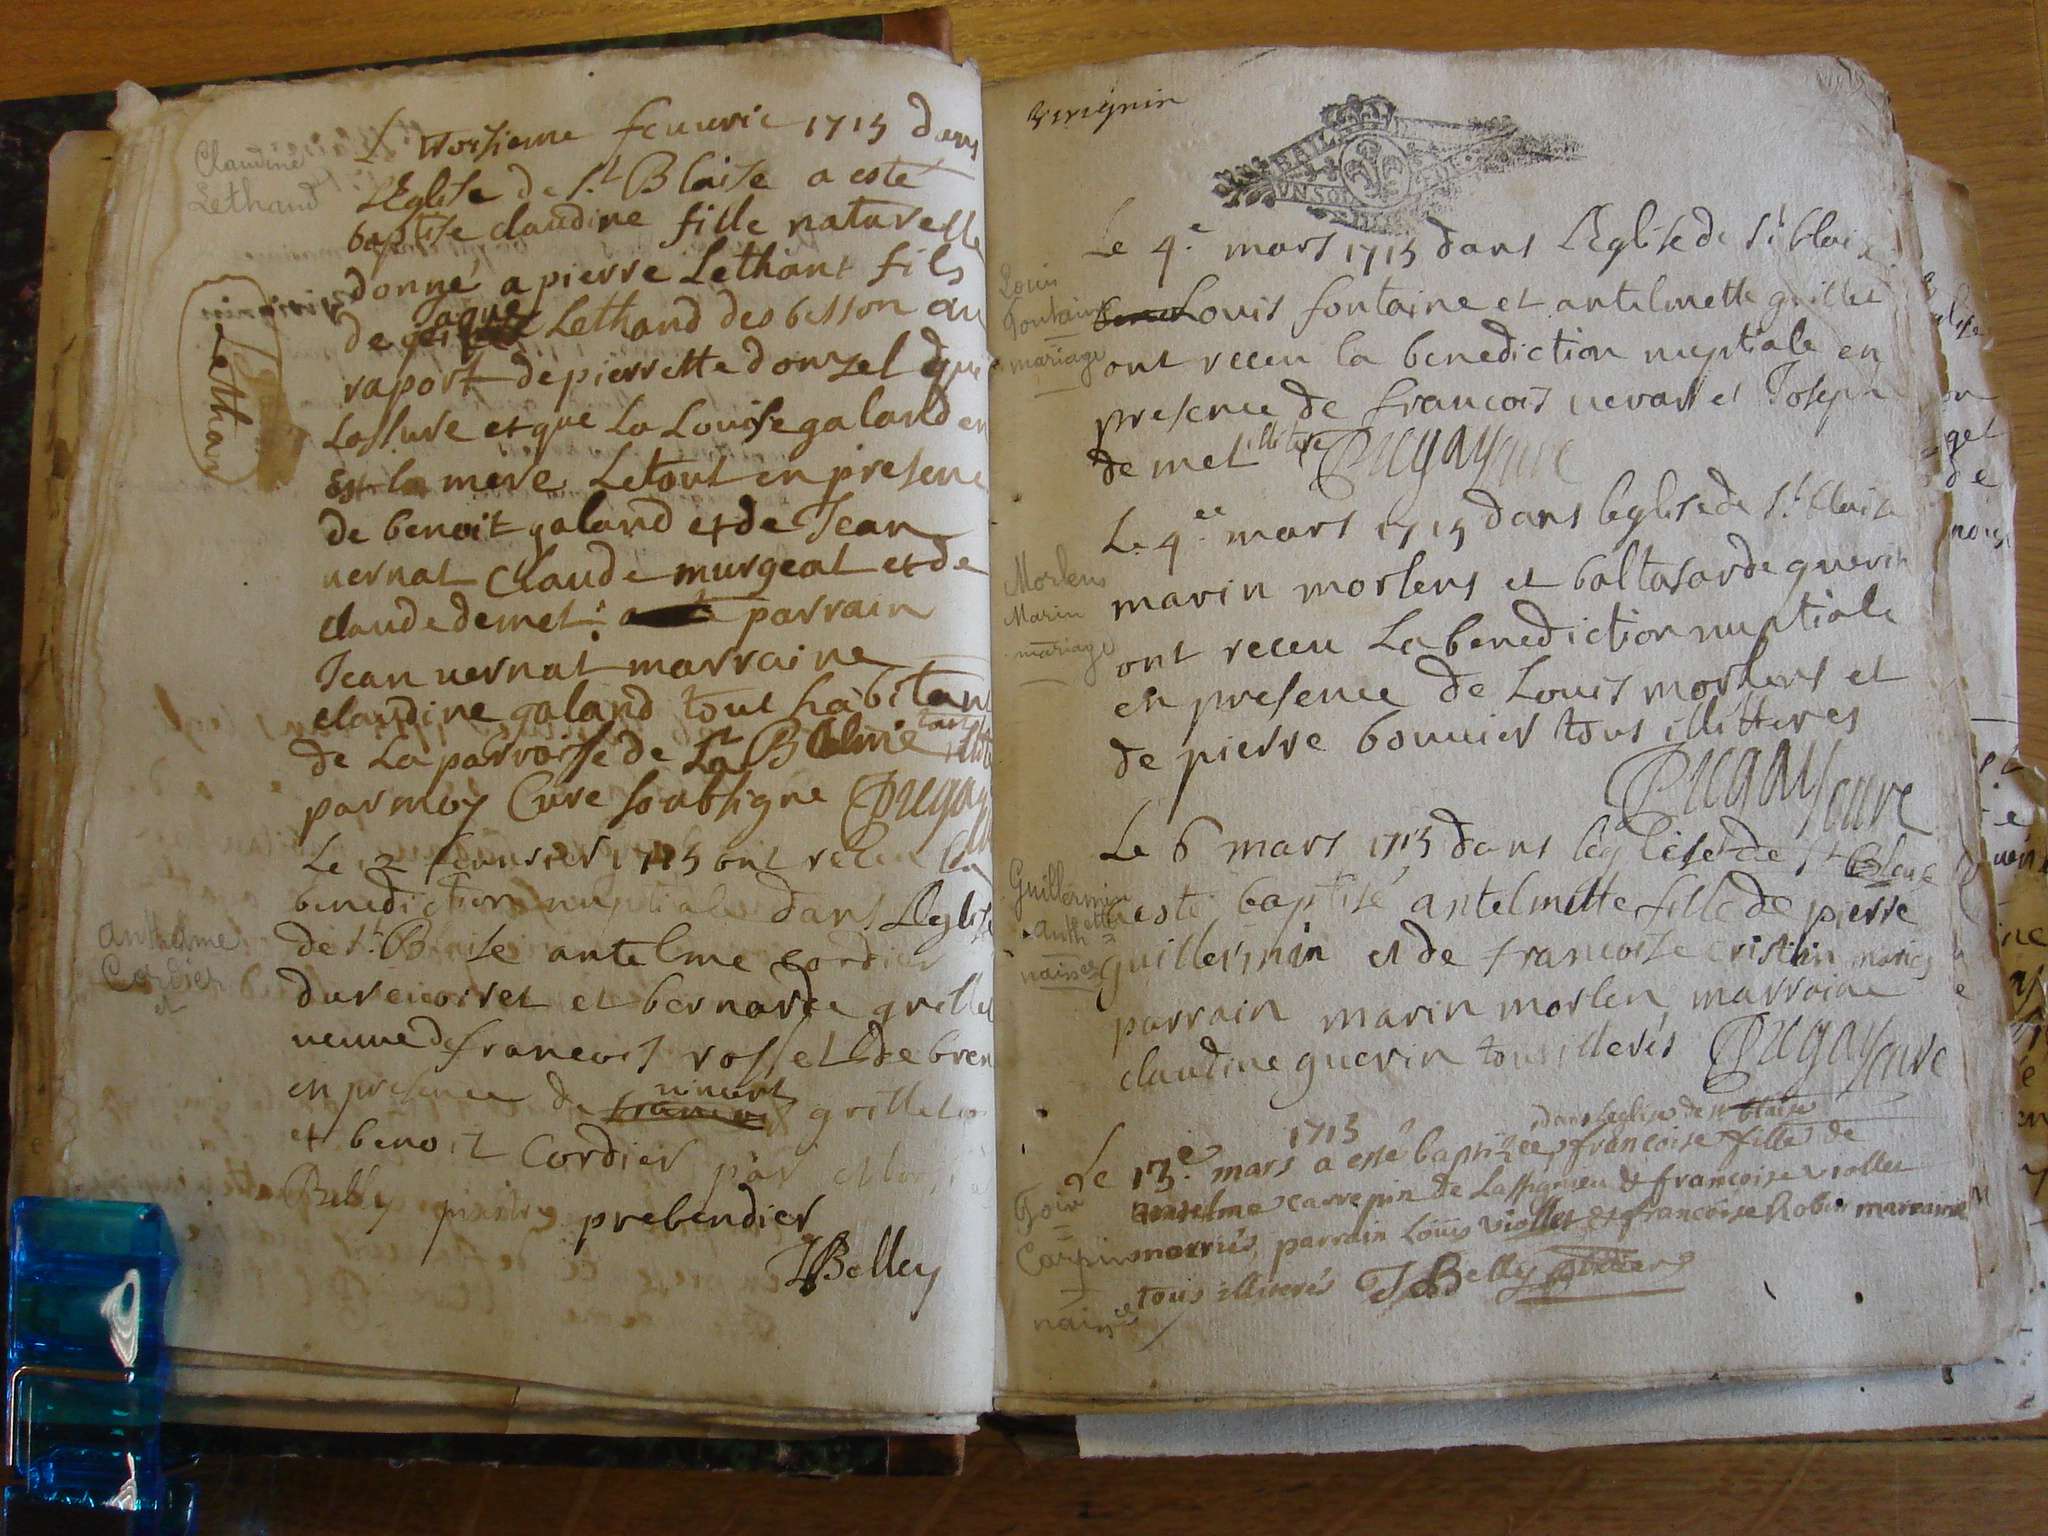 Claudine
Lethand
L troisieme feuurie 1715 dans
LEglise de St Blaise a esté
baptise claudine fille naturelle
donné a pierre Lethant fils
de Jaque Lethand des besson au
raport de pierrette donzel qui
Lassure et que La Louise galand en
est la mere Le tout en presence
de benoit galand et de Jean
uernat Claude murgeat et de
claude demet parrain
Jean uernat marraine
claudine galand tout habitant
de La parroisse de La Balme
par moy Cure soubsigne Dugay
Lethan
Le 2 feurier 1715 ont receu la
benediction nuptiale dans LEglise
de St Blaise antelme cordier
et bernarde grillet
ueuue de francois rosset de bren
en presence de uincent grillet
et benoit Cordier par
Belly prebendier
JBelley
anthelme
Cordier
et
virignin
BAIL
VN SOL
Le 4e mars 1715 dans LEglise de St blaise
Louis fontaine et antelmette grillet
ont receu la benediction nuptiale en
presence de francois et Joseph
demet Dugay cure
Louis
fontaine
mariage
Le 4ee mars 1715 dans leglise de St blaise
marin morlens et baltasarde guerin
ont receu La benediction nuptiale
en presence de Louis morlens et
de pierre bouuier tous illitteres
Dugay cure
Morlens
Marin
mariage
Le 6 mars 1715 dans leglise de St Blaise
a esté baptisé antelmette fille de pierre
guillermin et de francoise cristin maries
parrain marin morlen marraine
claudine guerin tous illeres Dugay cure
Guillermin
anth ette
naisce
1715 dans leglise de st blaise
Le 13e mars a esté baptizée francoise fille de
antelme carrepin de Lassignieu & francoise viollet
marriés, parrain Louis viollet et francoise Robin marraine
tous illiterés J Belly
naisce